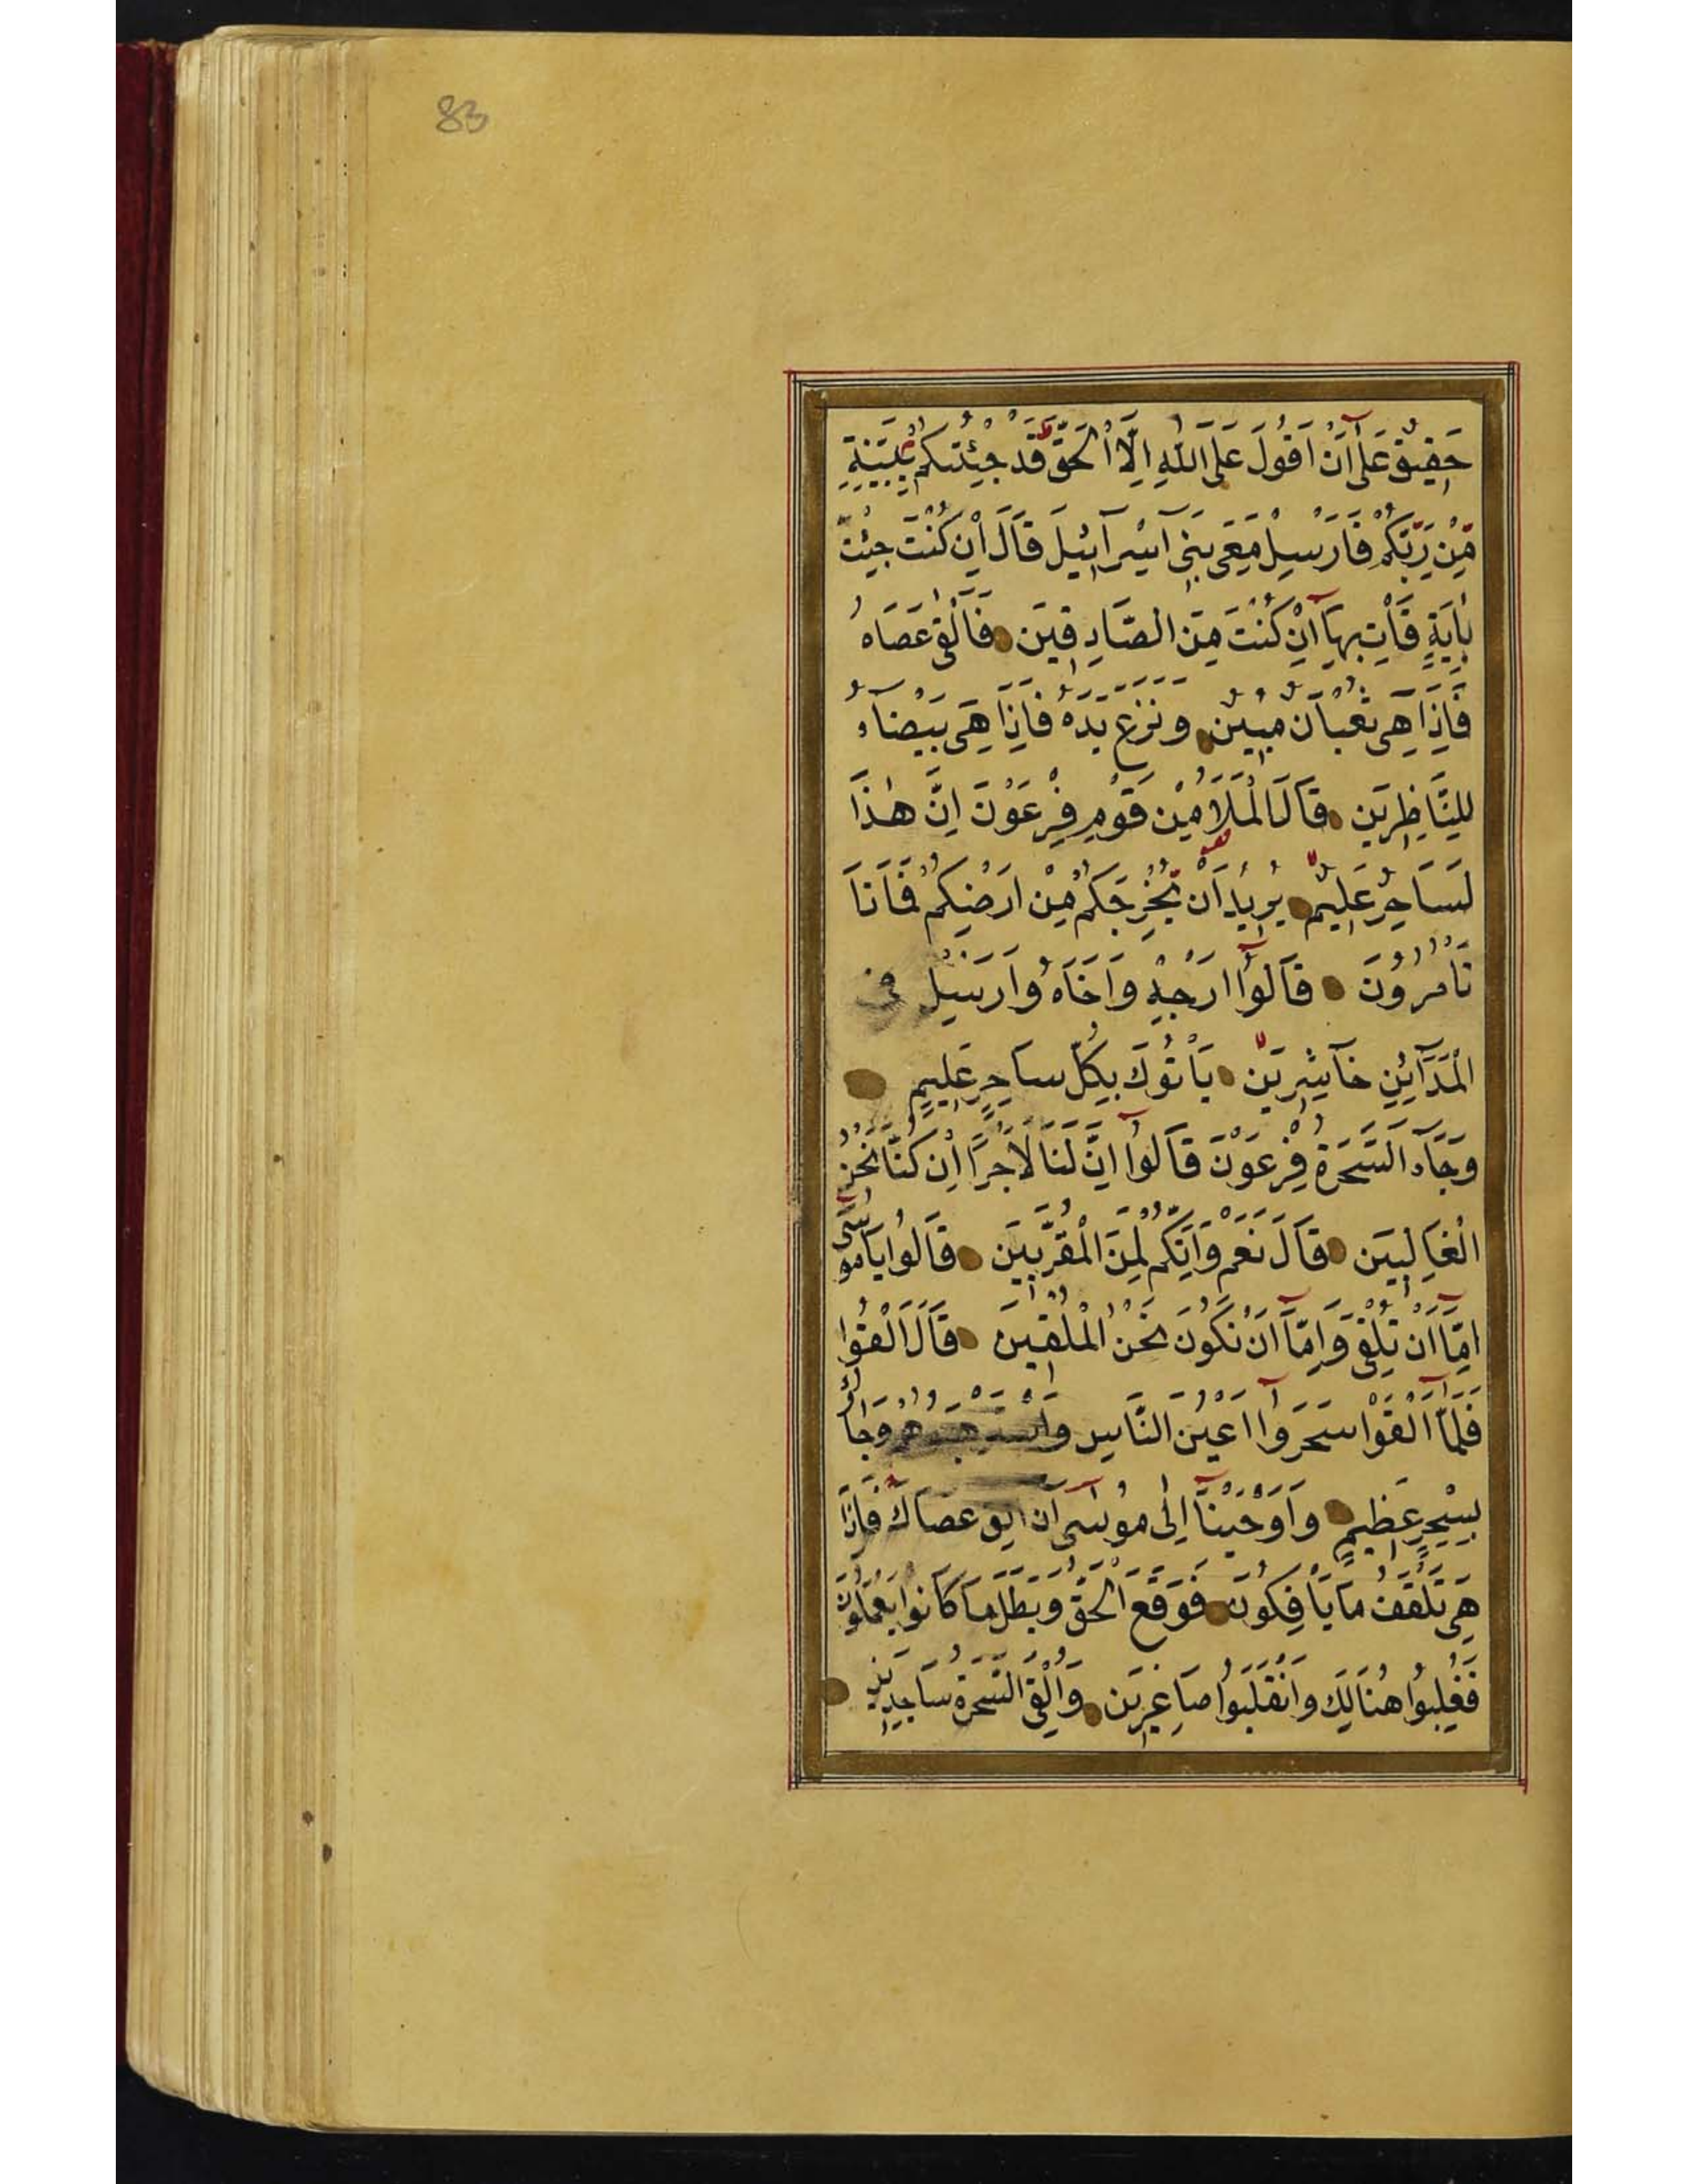 83
حَقِيقٌ عَلَىٰ أَنْ أَقُولَ عَلَى اللّٰهِ اِلَّا الْحَقَّ قَدْ جِئْتُكُمْ بِبَيِّنَةٍ
مِّنْ رَبِّكُمْ فَاَرْسِلْ مَعِيَ بَنِي اِسْرَآئِيلَ قَالَ اِنْ كُنْتَ جِئْتَ
بِاٰيَةٍ فَأْتِ بِهَآ اِنْ كُنْتَ مِنَ الصَّادِقِينَ فَاَلْقٰى عَصَاهُ
فَاِذَا هِيَ ثُعْبَانٌ مُبِينٌ وَنَزَعَ يَدَهُ فَاِذَا هِيَ بَيْضَآءُ
لِلنَّاظِرِينَ قَالَ الْمَلَأُ مِنْ قَوْمِ فِرْعَوْنَ اِنَّ هٰذَا
لَسَاحِرٌ عَلِيمٌ يُرِيدُ اَنْ يُخْرِجَكُمْ مِنْ اَرْضِكُمْ فَمَاذَا
تَأْمُرُونَ قَالُوٓا اَرْجِهْ وَاَخَاهُ وَاَرْسِلْ فِي
الْمَدَآئِنِ حَاشِرِينَ يَأْتُوكَ بِكُلِّ سَاحِرٍ عَلِيمٍ
وَجَآءَ السَّحَرَةُ فِرْعَوْنَ قَالُوٓا اِنَّ لَنَا لَاَجْرًا اِنْ كُنَّا نَحْنُ
الْغَالِبِينَ قَالَ نَعَمْ وَاِنَّكُمْ لَمِنَ الْمُقَرَّبِينَ قَالُوا يَا مُوسٰٓى
اِمَّآ اَنْ تُلْقِيَ وَاِمَّآ اَنْ نَكُونَ نَحْنُ الْمُلْقِينَ قَالَ اَلْقُوا
فَلَمَّآ اَلْقَوْا سَحَرُوٓا اَعْيُنَ النَّاسِ وَاسْتَرْهَبُوهُمْ وَجَاؤُ
بِسِحْرٍ عَظِيمٍ وَاَوْحَيْنَآ اِلٰى مُوسٰٓى اَنْ اَلْقِ عَصَاكَ فَاِذَا
هِيَ تَلْقَفُ مَا يَأْفِكُونَ فَوَقَعَ الْحَقُّ وَبَطَلَ مَا كَانُوا يَعْمَلُونَ
فَغُلِبُوا هُنَالِكَ وَانْقَلَبُوا صَاغِرِينَ وَاُلْقِيَ السَّحَرَةُ سَاجِدِينَ